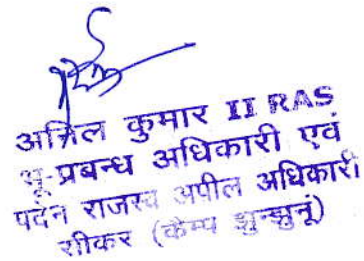 अनिल कुमार II RAS
भू-प्रबन्ध अधिकारी एवं
पदेन राजस्व अपील अधिकारी
सीकर (कैम्प झुन्झुनूं)